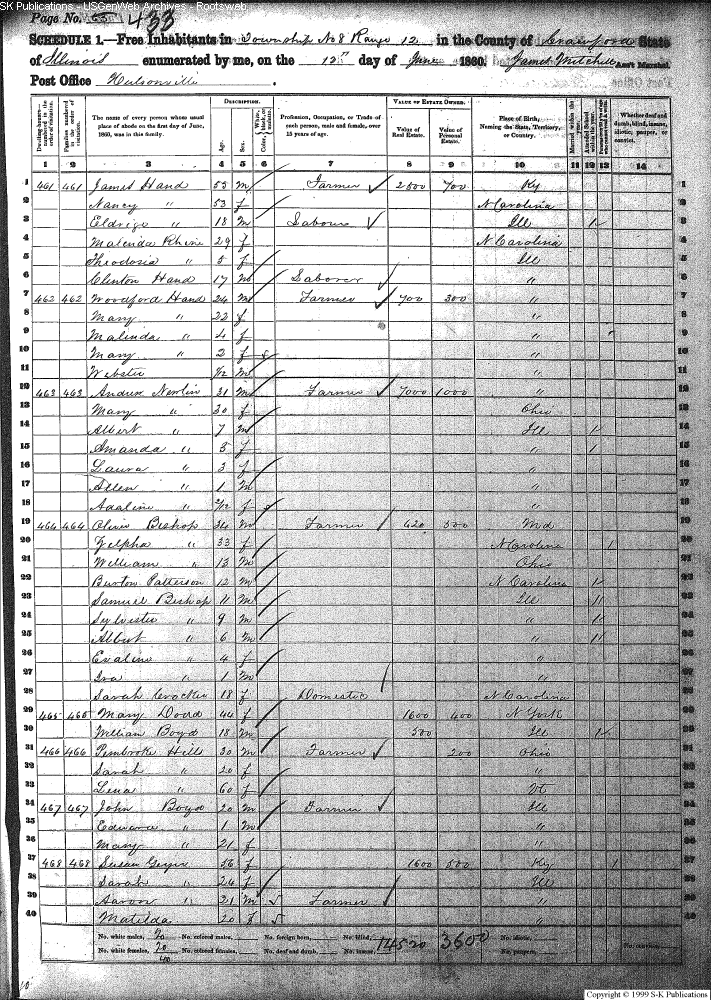 SK Publications - USGenWeb Archives - Rootsweb
Page No. 63 433
SCHEDULE 1.—Free Inhabitants in Township No 8 Range 12 in the County of Crawford State
of Illinois enumerated by me, on the 12th day of June 1860. Ass't Marshal.
Post Office Hutsonville.
Dwelling-houses—numbered in the order of visitation. Families numbered in the order of visitation. The name of every person whose usual place of abode on the first day of June, 1860, was in this family. DESCRIPTION. Age. Sex. Color, Profession, Occupation, or Trade of each person, male and female, over 15 years of age. VALUE OF ESTATE OWNED. Value of Real Estate. Value of Personal Estate. Place of Birth, Naming the State, Territory, or Country. Married within the year. Attended School within the year. Whether deaf and dumb, blind, insane, idiotic, pauper, or convict.
1 2 3 4 5 6 7 8 9 10 11 12 13 14
1 461 461 James Hand 53 m Farmer 2500 700 Ky 1
2 Nancy " 53 f N Carolina 2
3 Eldrige " 18 m Labour Ill 1 3
4 Malinda Rhine 29 f N Carolina 4
5 Theodosia " 5 f Ill 5
6 Clinton Hand 17 m Laborer " 6
7 462 462 Woodford Hand 24 m Farmer 700 300 " 7
8 Mary " 22 f " 8
9 Malinda " 4 f " 9
10 Mary " 2 f " 10
11 Webster m " 11
12 463 463 Andrew Newlin 31 m Farmer 7000 1000 " 12
13 Mary " 30 f Ohio 13
14 Albert " 7 m Ill 1 14
15 Amanda " 5 f " 1 15
16 Laura " 3 f " 16
17 Allen " 1 m " 17
18 Adaline " 2/12 f " 18
19 464 464 Oliver Bishop 34 m Farmer 620 500 Md 19
20 Zylpha " 33 f N Carolina 1 20
21 William " 13 m Ohio 21
22 Burton Patterson 12 m N Carolina 1 22
23 Samuel Bishop 11 m Ill 1 23
24 Sylvester " 9 m " 1 24
25 Albert " 6 m " 1 25
26 Evaline " 4 f " 26
27 Ira " 1 m " 27
28 Sarah Crocker 18 f Domestic N Carolina 28
29 465 465 Mary Doord 44 f 1600 400 N York 29
30 William Boyd 18 m 500 Ill 1 30
31 466 466 Pembroke Hill 30 m Farmer 200 Ohio 31
32 Sarah " 20 f " 32
33 Lena " 60 f Vt 33
34 467 467 John Boyd 20 m Farmer Ill 34
35 Edward " 1 m " 35
36 Mary " 21 f " 36
37 468 468 Susan Geyer 56 f 1600 500 Ky 1 37
38 Sarah " 24 f Ill 38
39 Aaron " 21 m 5 Farmer " 39
40 Matilda 20 f 5 " 40
No. white males, 20 No. colored males, No. foreign born, No. blind, 14520 3600 No. idiotic, No. convicts,
No. white females, 20 No. colored females, No. deaf and dumb, No. insane, No. paupers,
40
Copyright © 1999 S-K Publications